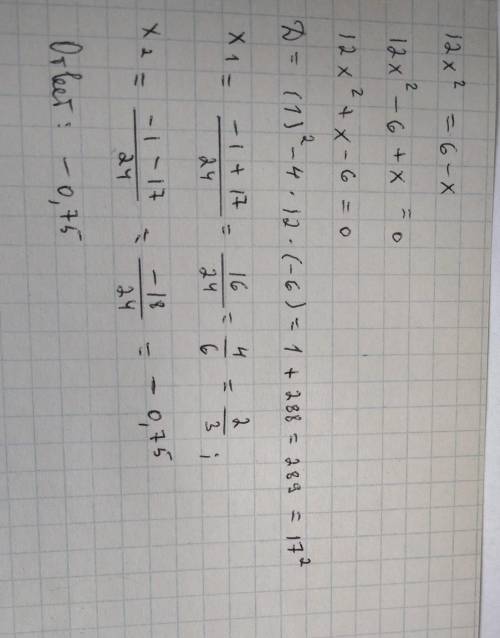 12x² = 6 - x
12x² - 6 + x = 0
12x² + x - 6 = 0
D = (1)² - 4 · 12 · (-6) = 1 + 288 = 289 = 17²
x₁ = \frac{-1 + 17}{24} = \frac{16}{24} = \frac{4}{6} = \frac{2}{3};
x₂ = \frac{-1 - 17}{24} = \frac{-18}{24} = - 0,75
Ответ: - 0,75